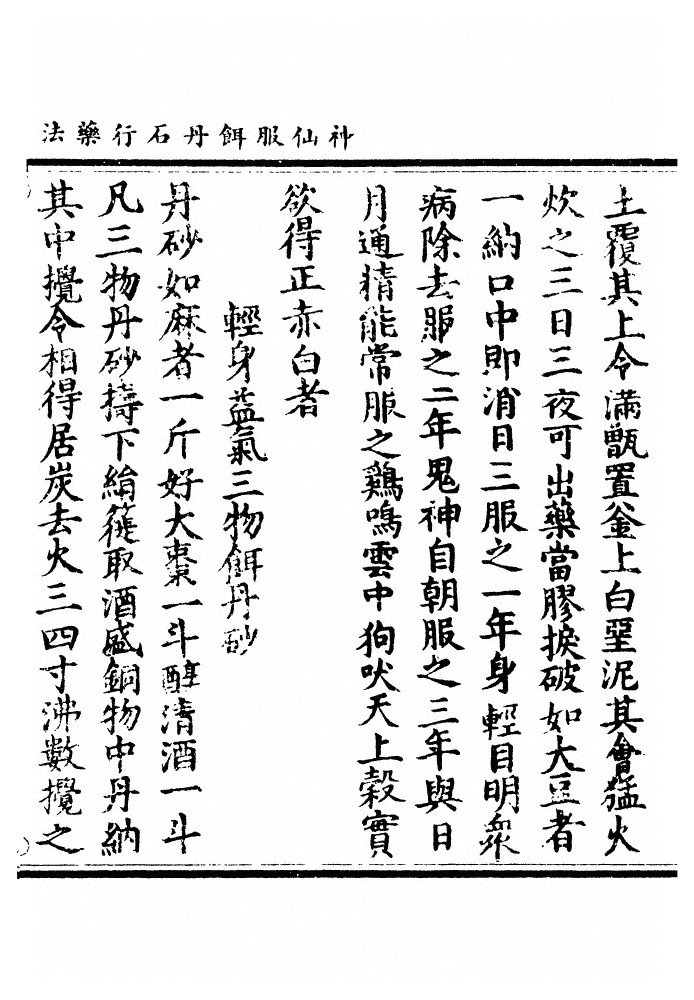 神仙服餌丹石行藥法
土覆其上令滿甑置釜上白堊泥其會猛火
炊之三日三夜可出藥當膠捩破如大豆者
一納口中即消日三服之一年身輕目明衆
病除去服之二年鬼神自朝服之三年與日
月通精能常服之鷄鳴雲中狗吠天上穀實
欲得正赤白者
輕身益氣三物餌丹砂
丹砂如麻者一斤好大棗一斗醇清酒一斗
凡三物丹砂擣下絹簁取酒盛銅物中丹納
其中攪令相得居炭去火三四寸沸數攪之